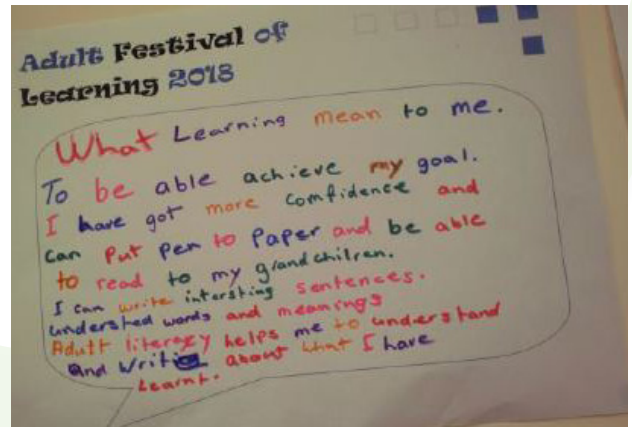 Adult Festival of
Learning 2018
What Learning mean to me.
To be able achieve my goal.
I have got more comfidence and
can Put pen to Paper and be able
to read to my grandchilren.
I can write intersting sentences.
understed words and meanings
Adult literacy helps me to understand
and writing about what I have
Learnt.